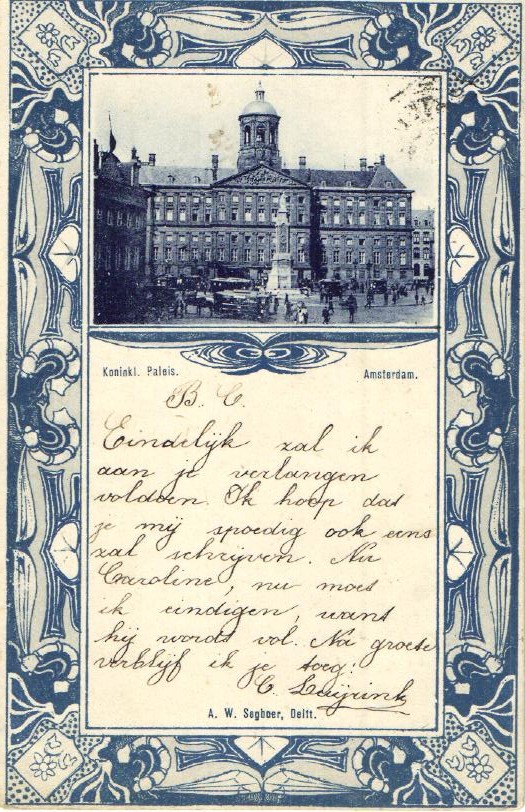 Koninkl. Paleis.
Amsterdam.
B. C.
Eindelijk zal ik
aan je verlangen
voldoen. Ik hoop dat
je mij spoedig ook eens
zal schrijven. Nu
Caroline, nu moet
ik eindigen, want
hij wordt vol. Na groete
verblijf ik je toeg:
C.
A. W. Segboer, Delft.